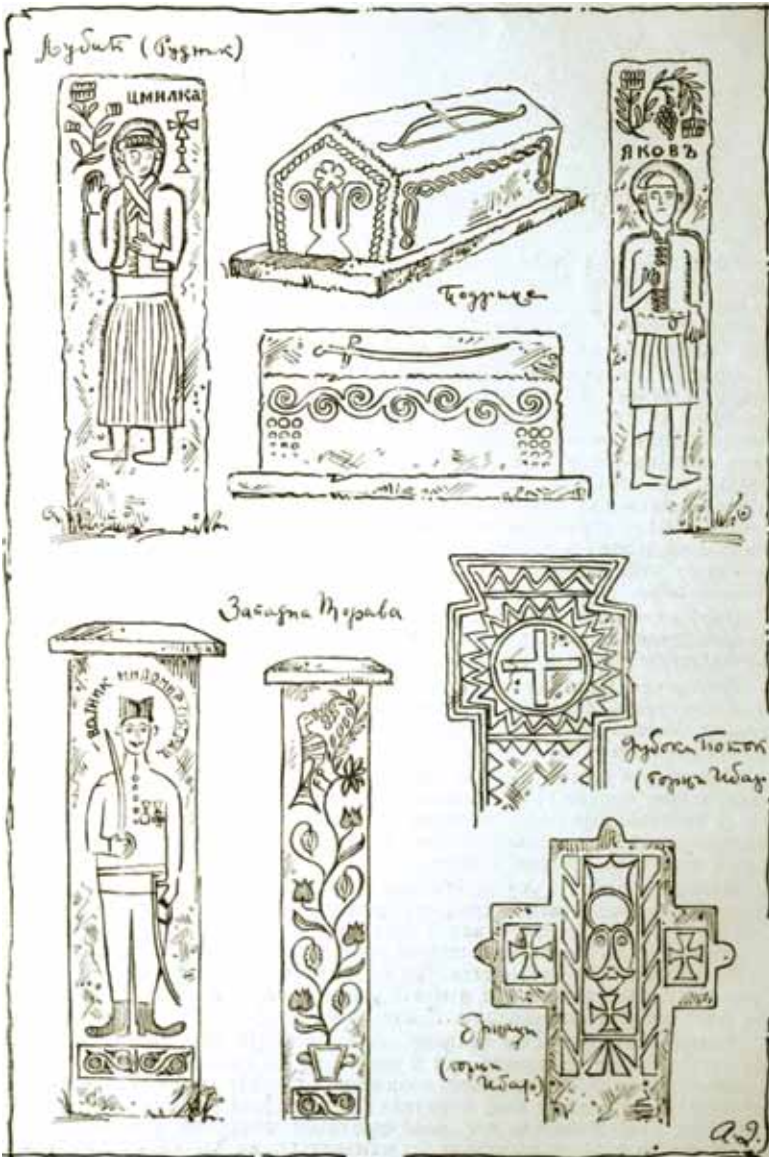 Љубић (Рудник)
ЦМИЛКА
ЯКОВЪ
Подринље
Западна Морава
ВОЈНИК
Дубоки Поток
(горњи Ибар)
(горњи
Ибар)
А. Д.